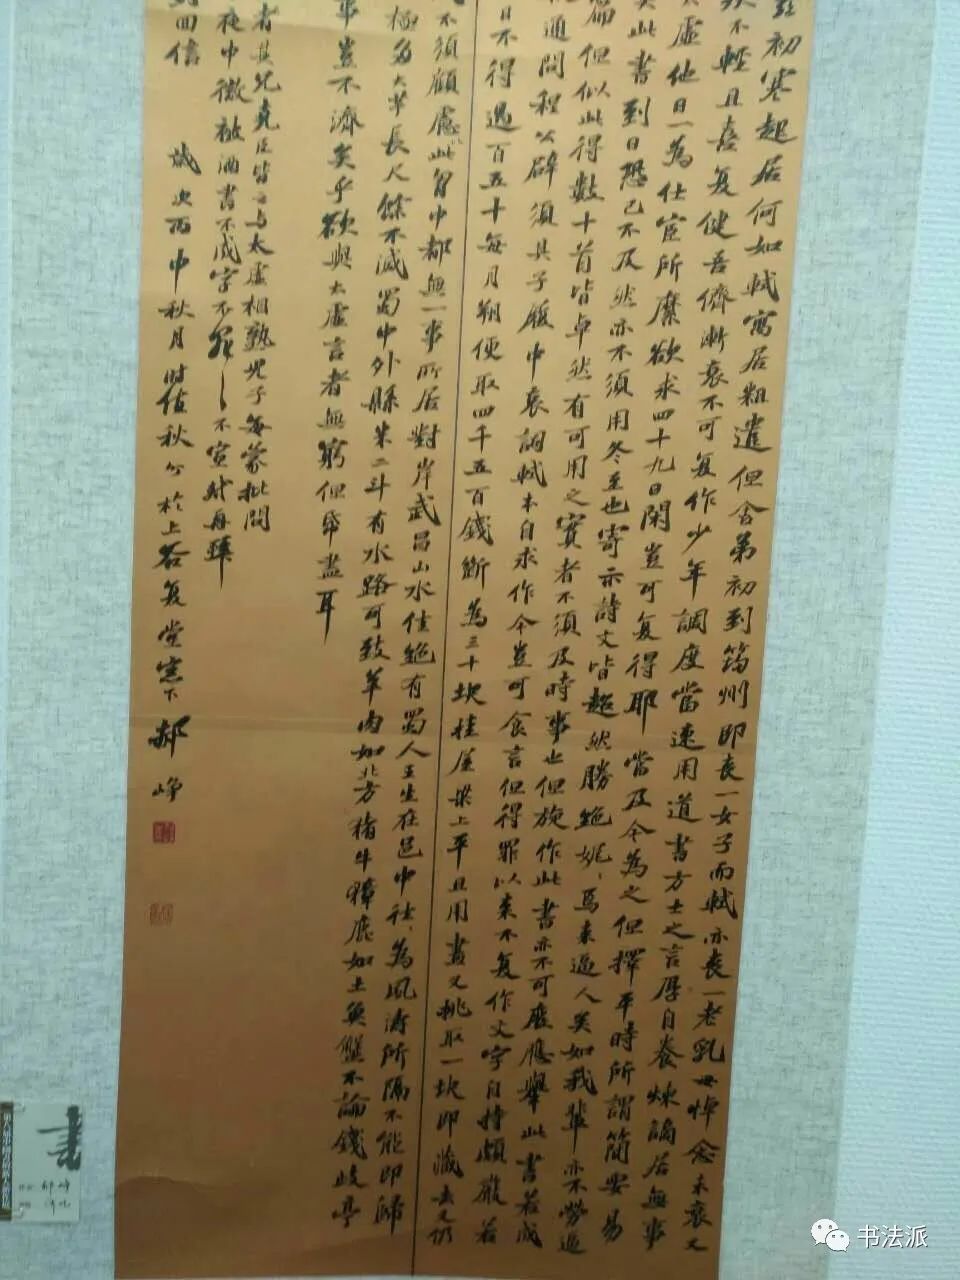 初寒起居何如軾寓居粗遣但舍弟初到筠州即喪一女子而軾亦喪一老乳母悼念未衰又
不輕且喜复健吾儕漸衰不可复作少年調度當速用道書方士之言厚自養煉謫居無事
虛他日一為仕宦所縻欲求四十九日閑豈可复得耶當及今為之但擇平時所謂簡要易
此書到日恐已不及然亦不須用冬至也寄示詩文皆超然勝絕娓、焉来逼人矣如我輩亦不勞逼
但似此得數十首皆卓然有可用之實者不須及時事也但旋作此書亦不可廢應舉此書若成
通問程公辟須其子履中哀詞軾本自求作今豈可食言但得罪以来不复作文字自持頗嚴若
日不得過百五十每月朔便取四千五百錢斷為三十塊挂屋梁上平旦用畫叉挑取一塊即藏去叉仍
不須顧慮此胷中都無一事所居對岸武昌山水佳絕有蜀人王生在邑中往、為風濤所隔不能即歸
極多大芋長尺餘不減蜀中外縣米二斗有水路可致羊肉如北方猪牛獐鹿如土魚蟹不論錢岐亭
事豈不濟矣乎欲與太虛言者無窮但帋盡耳
者其兄堯臣皆云与太虛相熟兒子每蒙批問
夜中微被酒書不成字不罪、不宣軾再拜
回信 歲次丙申秋月时值秋分於上谷复堂窓下郝峥
书法派